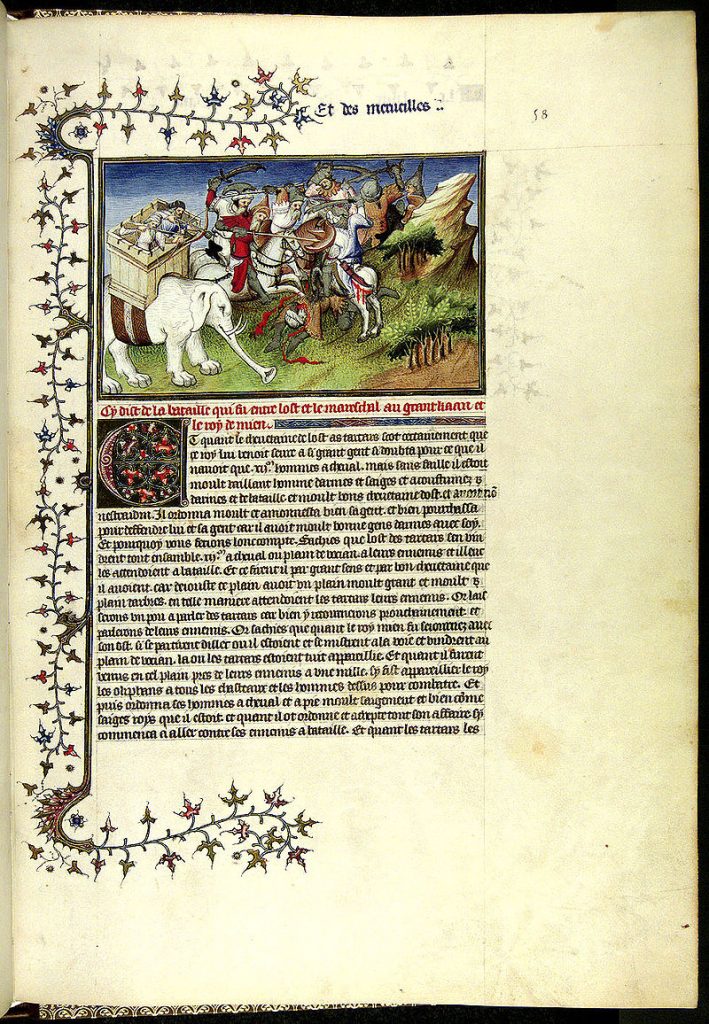 Et des merueilles
58
Cy dist de la bataille qui fu entre lost et le mareschal au grant kaan et
le roy de mien.
Et quant le cheuetaine de lost as tartars scot certainement que
ce roy lui venoit seure a si grant gent si doubta pour ce que il
nauoit que .xij.m hommes a cheual. mais sans faille il estoit
moult vaillant homme darmes et saiges et acoustumez
darmes et de bataille et moult bons cheuetaine dost. et
Il ordonna moult et amonnesta bien sa gent. et bien pourchassa
pour deffendre lui et sa gent car il auoit moult bonne gens darmes auec soy.
Et pourquoy vous feroie lonc compte. Sachies que lost des tartars sen vin
drent tout ensamble .xij.m a cheual ou plain de vocian a leurs ennemis et illec
les attendoient a bataille. Et ce firent il par grant sens et par bon cheuetaine que
il auoient. car de iouste ce plain auoit vn plain moult grant et moult
plain darbres. en telle maniere attendoient les tartars leurs ennemis. Or lais
serons vn pou a parler des tartars car bien y retournerons prouchainement. et
parlerons de leurs ennemis. Or sachies que quant le roy mien fu seiournez auec
son ost. si se partirent dillec ou il estoient et se mistrent a la voie et vindrent au
plain de vocian. la ou les tartars estoient tuit appareillie. Et quant il furent
venus en cel plain pres de leurs ennemis a vne mille. sy fist appareillier le roy
les oliphans a tous les chasteaux et les hommes dessus pour combatre. Et
puis ordonna ses hommes a cheual et a pie moult saigement et bien come
saiges roys que il estoit. et quant il ot ordonne et adrepte tout son affaire sy
commenca a aller contre ses ennemis a bataille. Et quant les tartars les